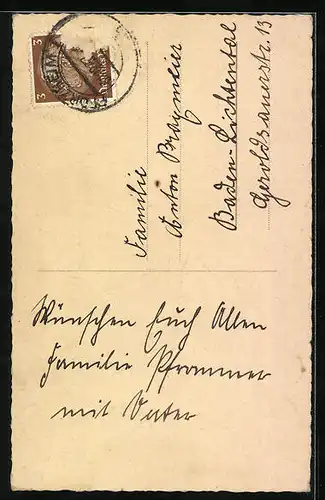 3 3
Familie
Anton Braxmeier
Baden-Lichtental
Geroldsauerstr. 13
Wünschen Euch Allen
Familie Pfrommer
mit Vater